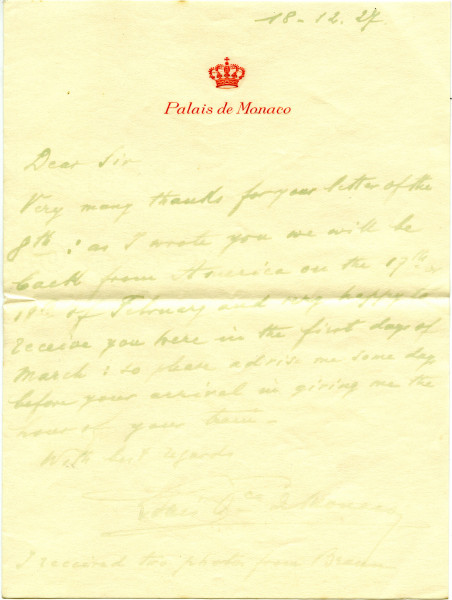 18-12.27
Palais de Monaco
Dear Sir
Very many thanks for your letter of the
8th : as I wrote you we will be
back from America on the 17th or
18th of February and very happy to
receive you here in the first days of
March : so please advise me some day
before your arrival in giving me the
hour of your train -
With best regards
de Monaco
I received the photos from Braun